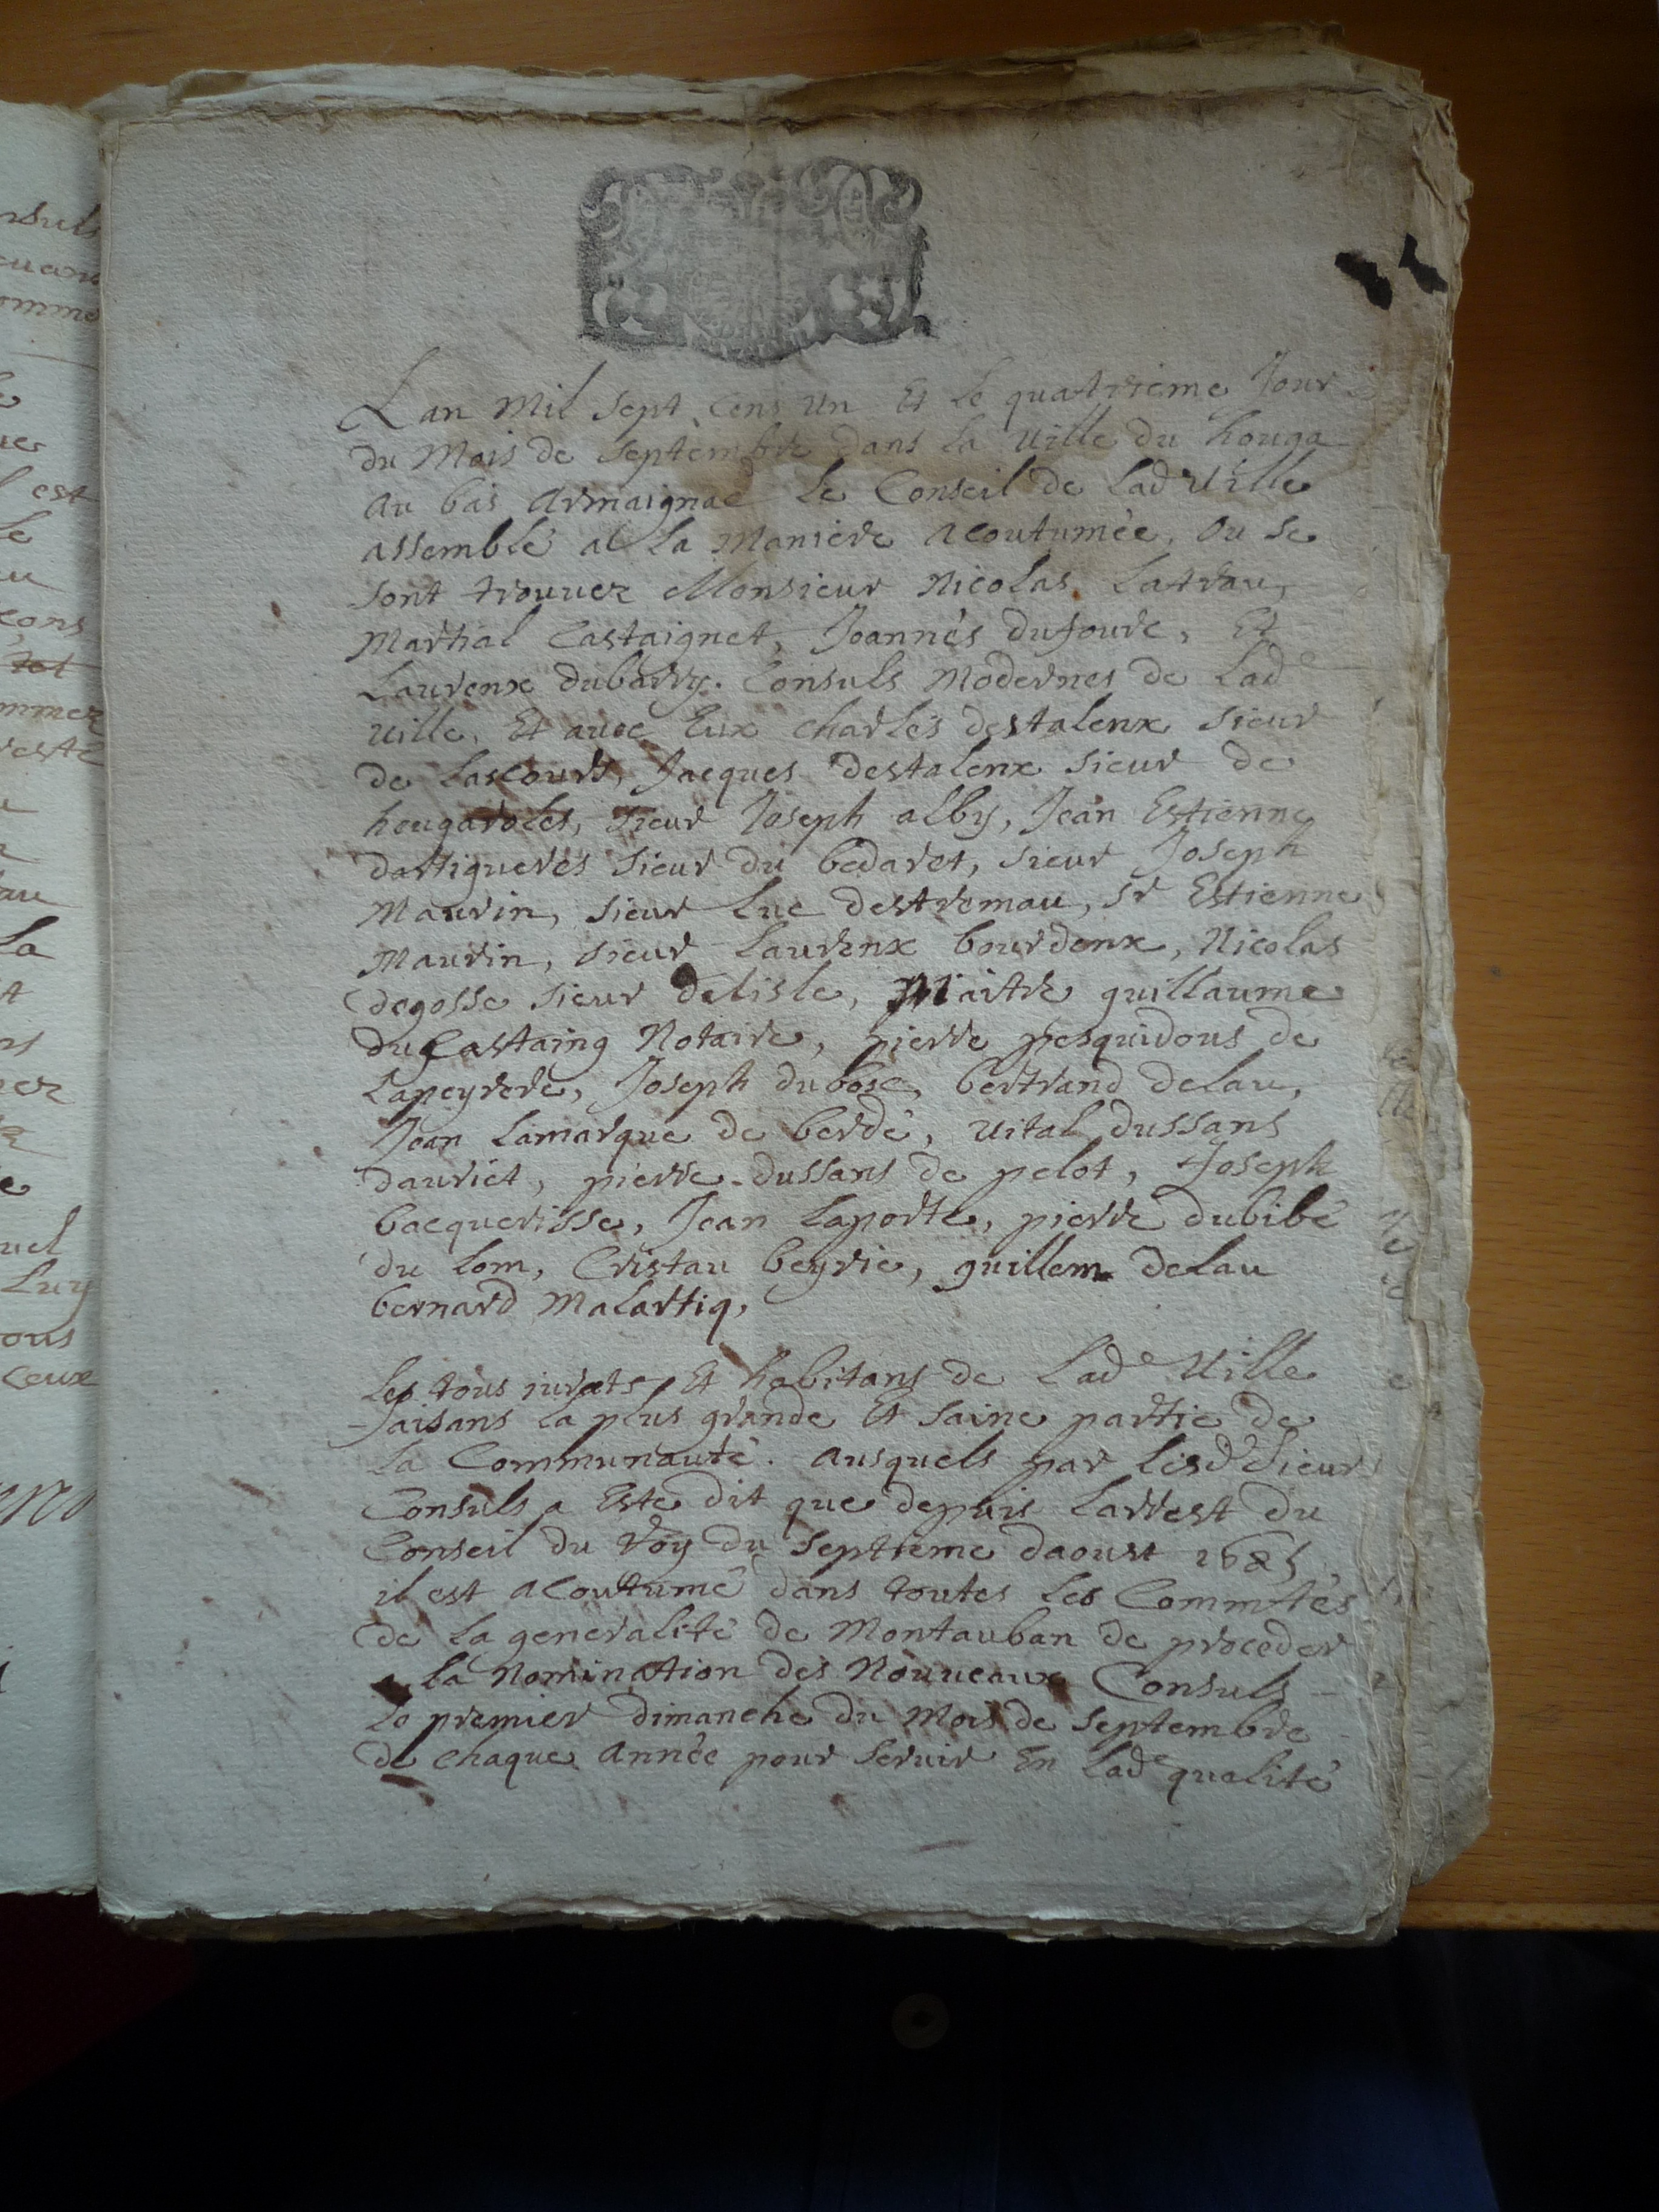 Lan Mil Sept Cens Un Et Le quatrieme Jour
du Mois de Septembre dans La Ville du houga
au bas Armaignac Le Conseil de Lad Ville
assemblé a La Maniere acoutumée, Ou se
sont trouuez Monsieur Nicolas Latrau,
Martial Castaignet, Joannés dufourc, Et
Laurenx dubarry. Consuls Modernes de Lade
Uille, Et auec Eux charles destalenx sieur
de Lascourts, Jacques destalenx sieur de
hougaroles, sieur Joseph alby, Jean Estienne
dartigueres sieur du bedaret, sieur Joseph
Maurin, sieur Luc destremau, sr Estienne
Maurin, sieur Laurenx bourdenx, Nicolas
degosse sieur delisle, Maitre guillaume
ducastaing Notaire, pierre pesquidous de
Lapeyrere, Joseph dubosc, bertrand delau,
Jean Lamarque de berdé, Uital dussans
dauriet, pierre dussans de pelot, Joseph
bacquerisse, Jean Laporte, pierre dubibé
du Lom, Cristau beyrie, guillem delau
bernard Malartiq,
Les tous jurats Et habitans de Lade Uille
faisans la plus grande Et saine partie de
La Communauté. ausquels par Lesd Sieur
Consuls a Esté dit que depuis Larrest du
Conseil du Roy du Septieme daoust 1685
il est acoutumé dans toutes Les Commtés
de La generalité de Montauban de proceder
a La Nomination des Nouueaux Consuls
Le premier dimanche du Mois de Septembre
de chaque année pour Seruir En Lade qualité